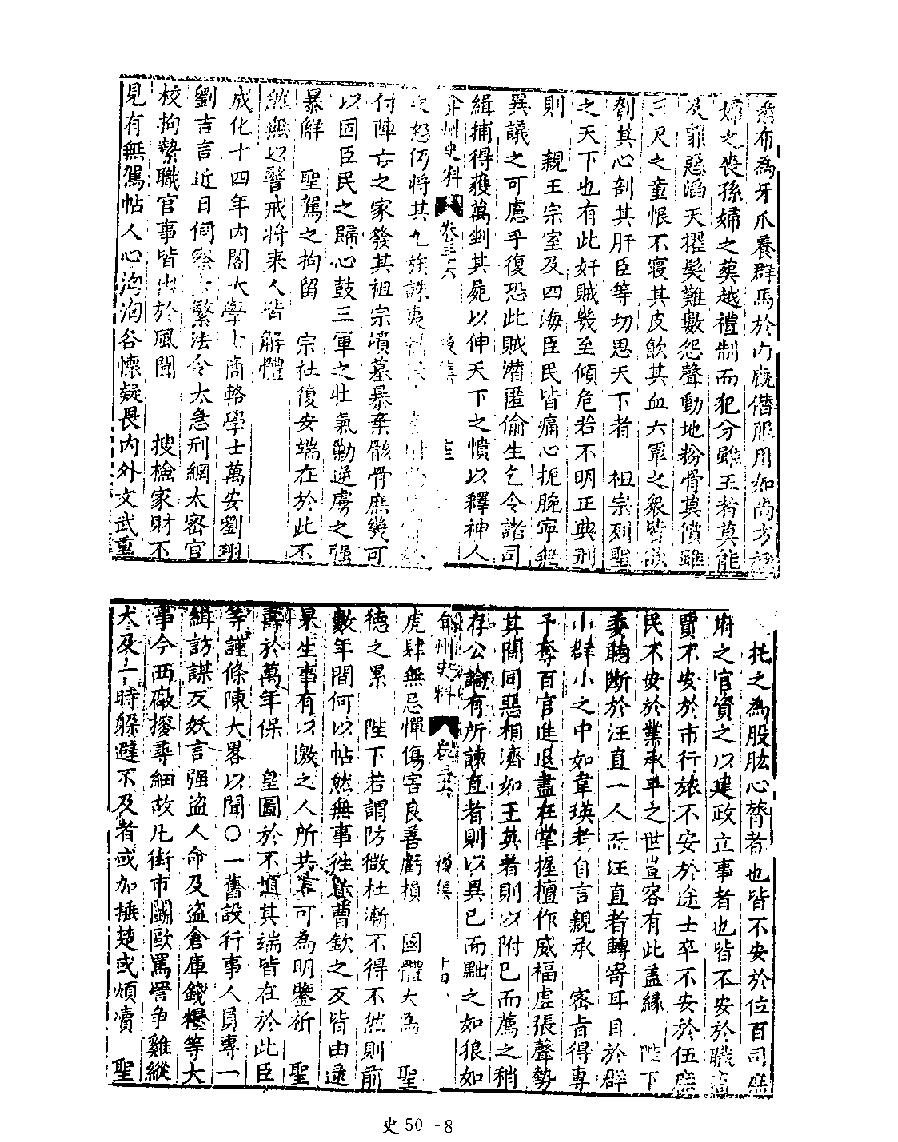 爲牙爪養群馬於內廐僭服用如尚方
婦之喪孫婦之葬越禮制而犯分雖王者莫能
罪惡滔天擢髮難數怨聲動地粉骨莫償雖
三尺之童恨不寢其皮飲其血六軍之衆皆欲
刳其心剖其肝臣等切思天下者　祖宗列聖
之天下也有此奸賊幾至傾危若不明正典刑
則　親王宗室及四海臣民皆痛心扼腕寧無
異議之可慮乎復恐此賊潛匿偷生乞令諸司
緝捕得獲萬剉其屍以伸天下之憤以釋神人
弇州史料　卷三十六　後集
之怒仍將其九族誅夷
付陣亡之家發其祖宗墳墓暴棄骸骨庶幾可
以固臣民之歸心鼓三軍之壯氣勦逆虜之強
暴觧　聖駕之拘留　宗社復安端在於此不
然無以警戒將來人皆解體
成化十四年內閣大學士商輅學士萬安劉珝
劉吉言近日伺察太繁法令太急刑網太密官
校拘繫職官事皆出於風聞　搜檢家財不
見有無駕帖人心洶洶各懷疑畏內外文武重
托之爲股肱心膂者也皆不安於位百司庶
府之官資之以建政立事者也皆不安於職商
賈不安於市行旅不安於途士卒不安於伍庶
民不安於業承平之世豈容有此蓋緣　陛下
委聽斷於汪直一人而汪直者轉寄耳目於群
小群小之中如韋瑛者自言親承　密旨得專
予奪百官進退盡在掌握擅作威福虛張聲勢
其間同惡相濟如王其者則以附已而薦之稍
存公論有所諫直者則以異已而黜之如狼如
弇州史料　卷三十六　後集
虎肆無忌憚傷害良善虧損　國體大爲　聖
德之累　陛下若謂防微杜漸不得不然則前
數年間何以帖然無事徃歲曹欽之反皆由逯
杲生事有以激之人所共〇可爲明鑒祈　聖
壽於萬年保　皇圖於不塡其端皆在於此臣
等謹條陳大畧以聞○一舊設行事人員專一
緝訪謀反妖言强盜人命及盜倉庫錢糧等大
事今西廠撥尋細故凡街市鬭毆罵詈爭雞縱
犬及一時躱避不及者或加捶楚或煩瀆　聖
史 50 - 8